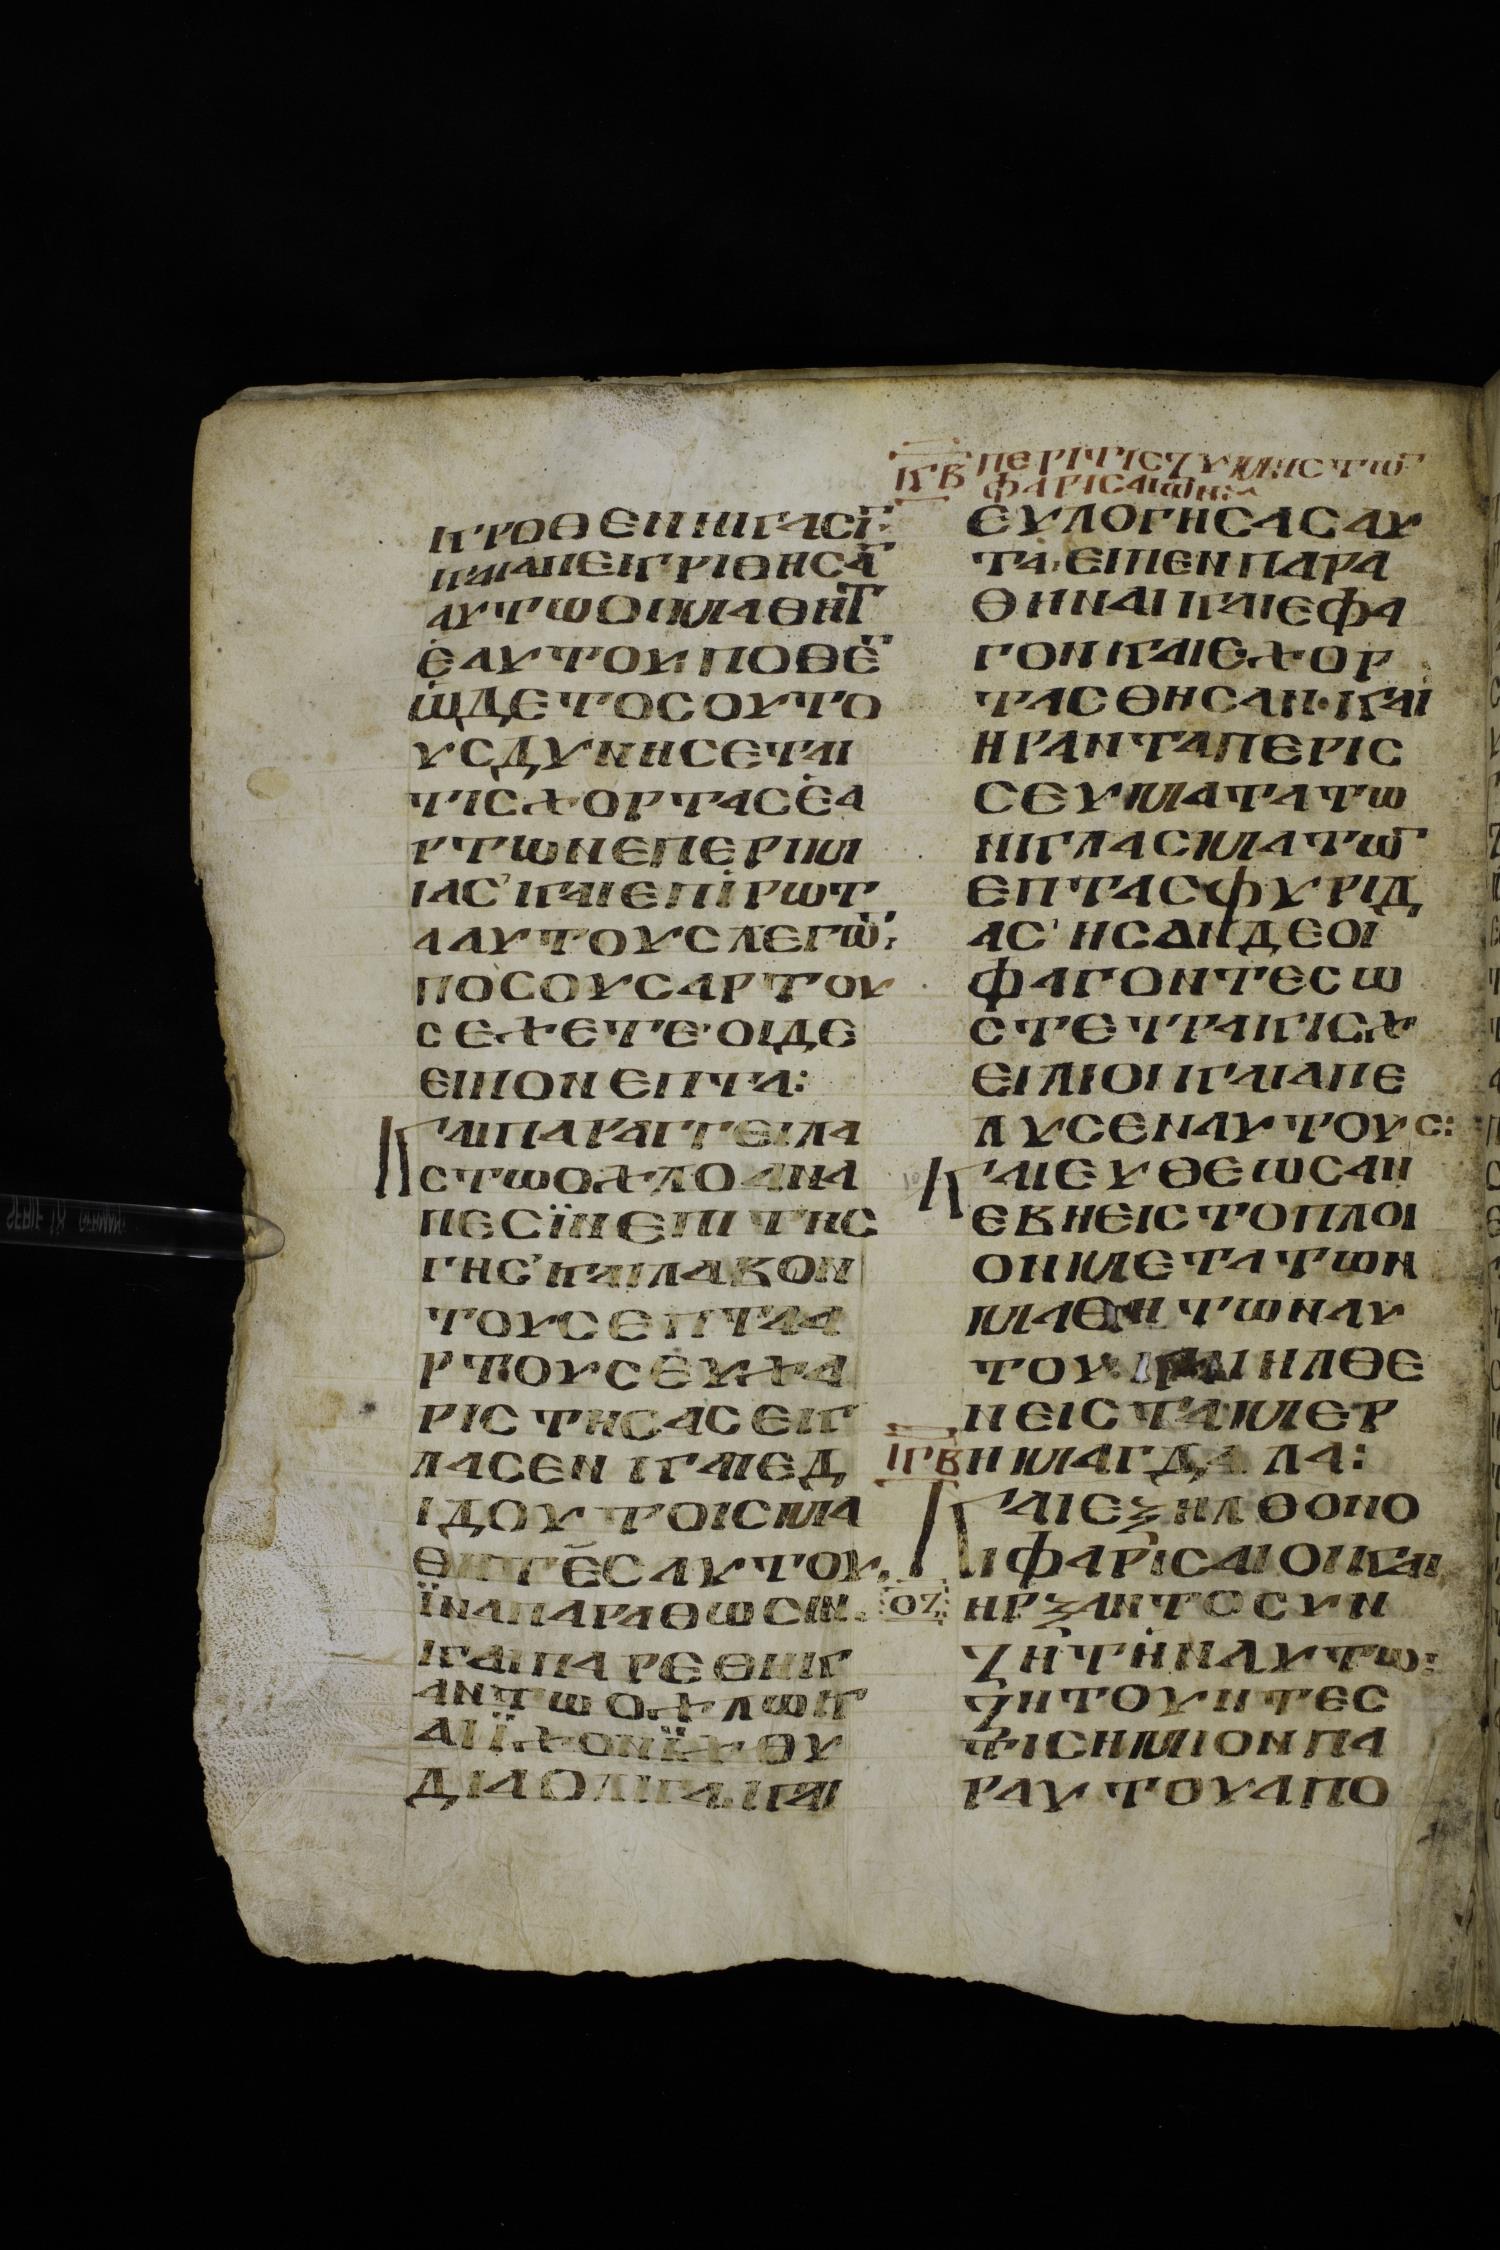 ΚΒ ΠΕΡΙΤΙϹΖΥΜΗϹΤΩ̅
ΦΑΡΙϹΑΙΩΝ:~
ΚΡΟΘΕΝΗΚΑϹΙ̅:
ΚΑΙΑΠΕΚΡΙΘΗϹΑ̅
ΑΥΤΩΟΙΜΑΘΗΤ̅
ΕΑΥΤΟΥ ΠΟΘΕ̅
ΩΔΕΤΟϹΟΥΤΟ
ΥϹΔΥΝΗϹΕΤΑΙ
ΤΙϹΧΟΡΤΑϹΕΑ
ΡΤΩΝΕΠΕΡΙΜΙ
ΙΑϹ'ΚΑΙΕΠΙΡΩΤ
ΑΑΥΤΟΥϹΛΕΓΩ̅:
ΠΟϹΟΥϹΑΡΤΟΥ
ϹΕΧΕΤΕ·ΟΙΔΕ
ΕΙΠΟΝΕΠΤΑ:
ΚΑΙΠΑΡΑΓΓΕΙΛΑ
ϹΤΩΟΧΛΟΑΝΑ
ΠΕϹΪΝΕΠΙΤΗϹ
ΓΗϹ'ΚΑΙΛΑΒΟΝ
ΤΟΥϹΕΠΤΑΑ
ΡΤΟΥϹΕΥΧΑ
ΡΙϹΤΗϹΑϹΕΚ
ΛΑϹΕΝΚΑΙΕΔ
ΙΔΟΥΤΟΙϹΜΑ
ΘΗΤΕϹΑΥΤΟΥ.
ΪΝΑΠΑΡΑΘΩϹΙΝ.
ΚΑΙΠΑΡΕΘΗΚ
ΑΝΤΩΟΧΛΩΚ
ΑΙΪΧΟΝΪΧΘΥ
ΔΙΑΟΛΙΓΑ.ΚΑΙ
ΕΥΛΟΓΗϹΑϹΑΥ
ΤΑ·ΕΙΠΕΝΠΑΡΑ
ΘΗΝΑΙΚΑΙΕΦΑ
ΓΟΝΚΑΙΕΧΟΡ
ΤΑϹΘΗϹΑΝ·ΚΑΙ
ΗΡΑΝΤΑΠΕΡΙϹ
ϹΕΥΜΑΤΑΤΩ
ΝΚΛΑϹΜΑΤΩ̅
ΕΠΤΑϹΦΥΡΙΔ
ΑϹ'ΗϹΑΝΔΕΟΙ
ΦΑΓΟΝΤΕϹΩ
ϹΤΕΤΡΑΚΙϹΧ
ΕΙΛΙΟΙΚΑΙΑΠΕ
ΛΥϹΕΝΑΥΤΟΥϹ:
ΚΑΙΕΥΘΕΩϹΑΝ
ΕΒΗΕΙϹΤΟΠΛΟΙ
ΟΝΜΕΤΑΤΩΝ
ΜΑΘΗΤΩΝΑΥ
ΤΟΥ·ΚΑΙΗΛΘΕ
ΝΕΙϹΤΑΜΕΡ
ΚΒ ΗΜΑΓΔΑΛΑ:
ΚΑΙΕΞΗΛΘΟΠΟ
ΙΦΑΡΙϹΑΙΟΙΚΑΙ
ΟΖ ΗΡΞΑΝΤΟϹΥΝ
ΖΗΤΗΝΑΥΤΩ:
ΖΗΤΟΥΝΤΕϹ
ΤΙϹΗΜΙΟΝΠΑ
ΡΑΥΤΟΥΑΠΟ